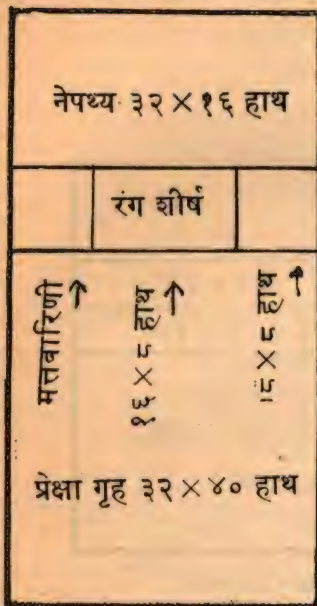 नेपथ्य ३२ × १६ हाथ
रंग शीर्ष
मत्तवारिणी
१६ × ८ हाथ
८ × ८ हाथ
प्रेक्षा गृह ३२ × ४० हाथ